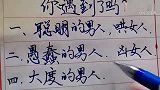 你遇到了吗
一.聪明的男人.哄女人.
二.愚蠢的男人.斗女人
四.大度的男人.